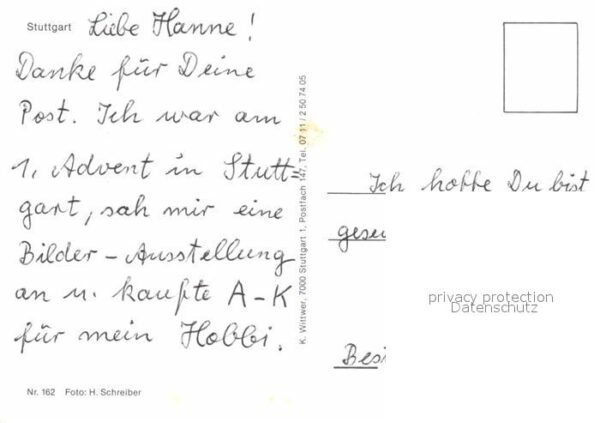 Stuttgart Liebe Hanne!
Danke für Deine
Post. Ich war am
1. Advent in Stutt=
gart, sah mir eine
Bilder-Ausstellung
an u. kaufte A-K
für mein Hobbi.
Nr. 162 Foto: H. Schreiber
K. Wittwer, 7000 Stuttgart 1, Postfach 147, Tel. 07 11 / 2 50 74 05
Ich hoffe Du bist
privacy protection
Datenschutz